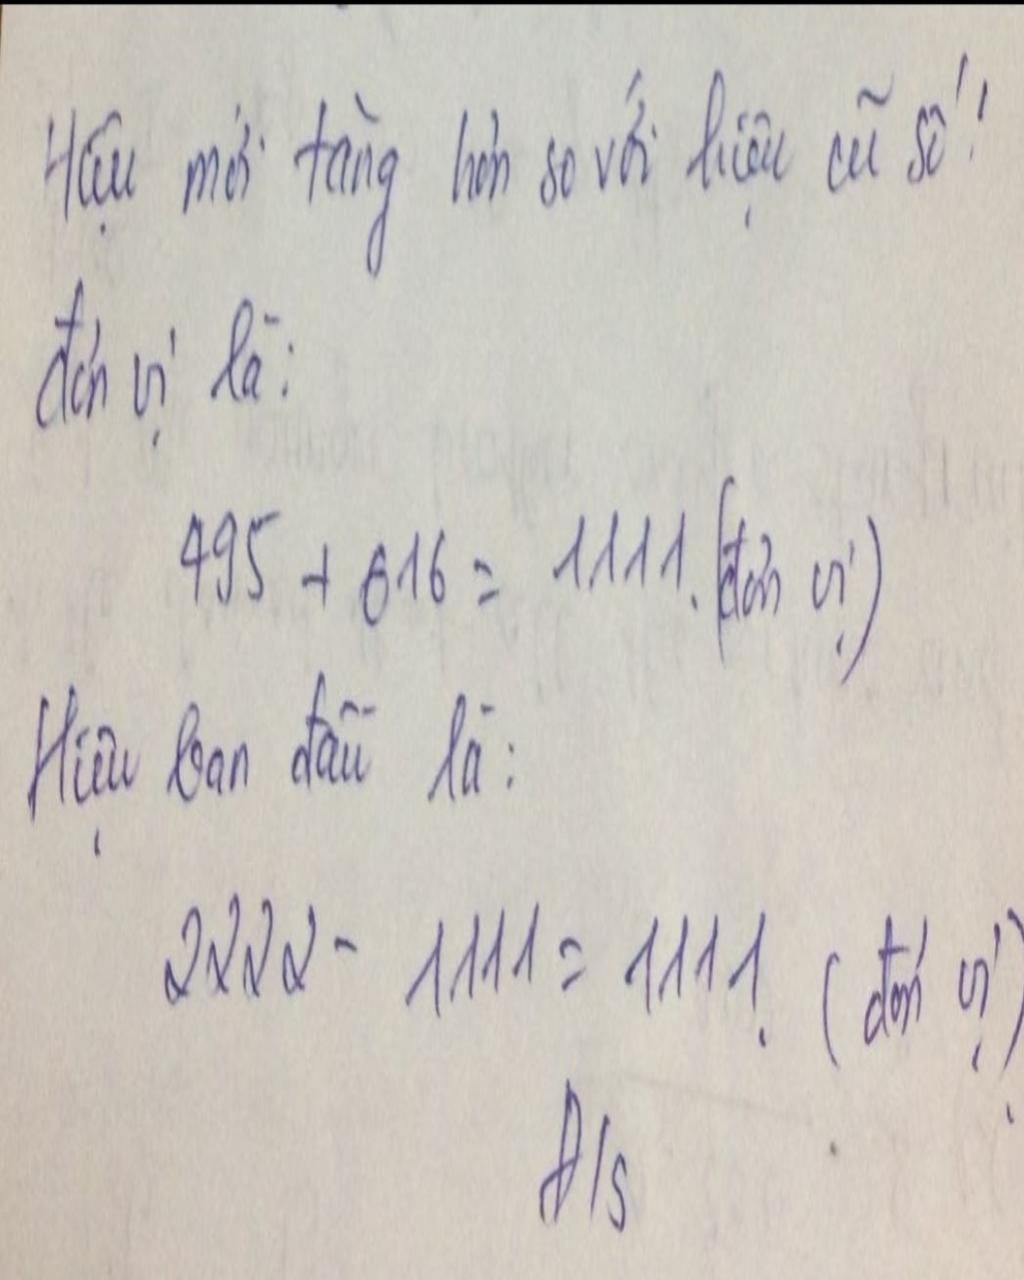 Hiệu mới tăng hơn so với hiệu cũ số
đơn vị là:
495 + 616 = 1111. (đơn vị)
Hiệu ban đầu là:
2222 - 1111 = 1111. (đơn vị)
Đ/s